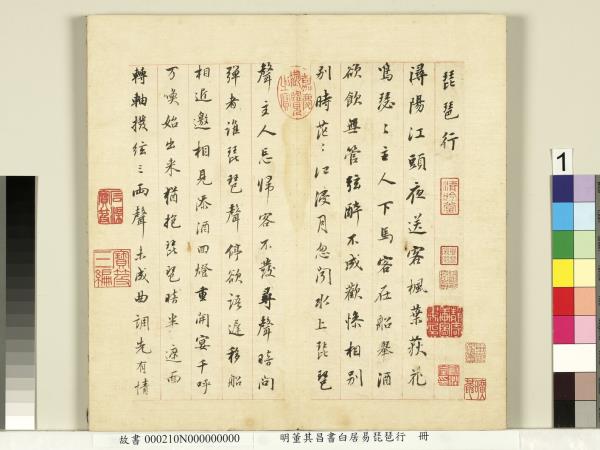 琵琶行
潯陽江頭夜送客楓葉荻花
瑟々主人下馬客在船舉酒
欲飲無管弦醉不成歡慘相別
別時茫々江浸月忽聞水上琵琶
聲主人忘歸客不發尋聲暗問
彈者誰琵琶聲停欲語遲移船
相近邀相見添酒回燈重開宴千呼
万喚始出来猶抱琵琶半遮面
轉軸撥弦三兩聲未成曲調先有情
三編
1
故書 000210N000000000
明董其昌書白居易琵琶行 冊